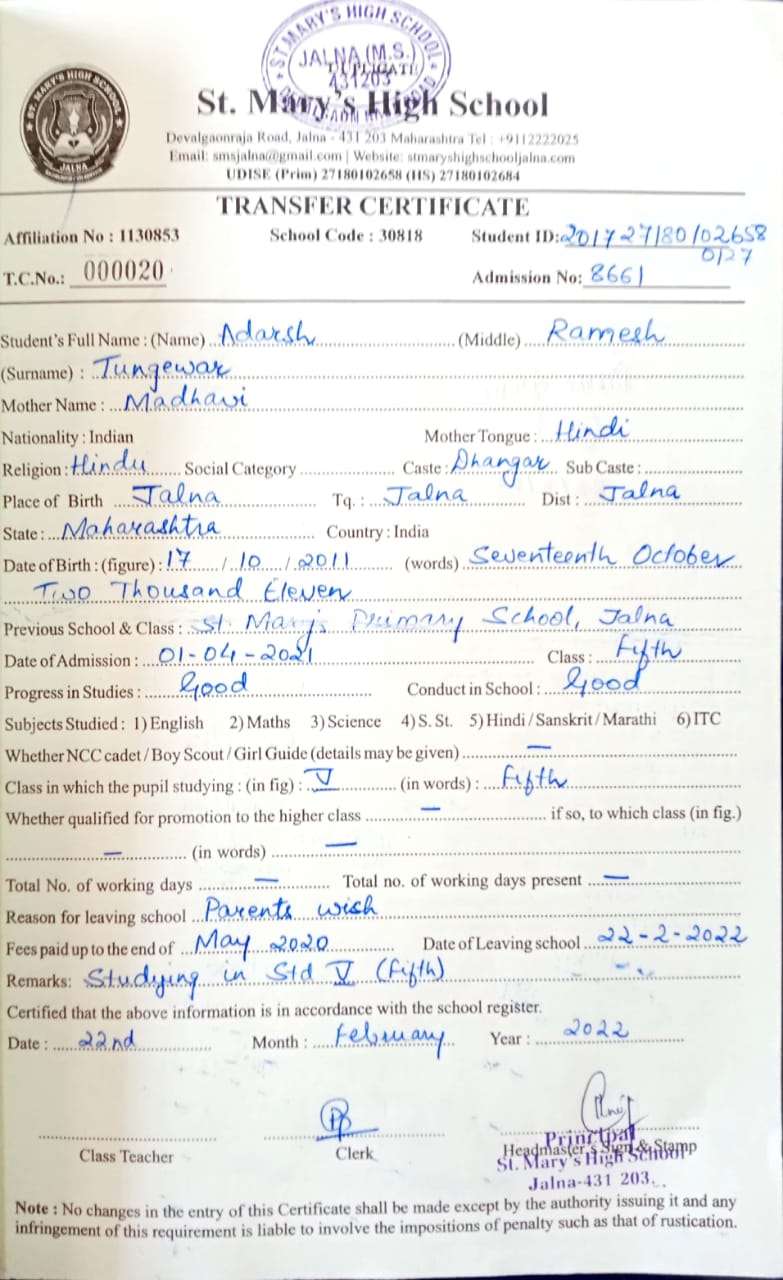 ST. MARY'S HIGH SCHOOL
JALNA (M.S.)
DUPLICATE
431203
ST. MARY'S HIGH SCHOOL
JALNA
St. Mary's High School
Devalgaonraja Road, Jalna - 431 203 Maharashtra Tel : +9112222025
Email: smsjalna@gmail.com | Website: stmaryshighschooljalna.com
UDISE (Prim) 27180102658 (HS) 27180102684
TRANSFER CERTIFICATE
Affiliation No : 1130853 School Code : 30818 Student ID: 2017 27180102658
0127
T.C.No.: 000020 Admission No: 8661
Student's Full Name : (Name) Adarsh (Middle) Ramesh
(Surname) : Tungewar
Mother Name : Madhavi
Nationality : Indian Mother Tongue : Hindi
Religion : Hindu Social Category Caste : Dhangar Sub Caste :
Place of Birth Jalna Tq. : Jalna Dist : Jalna
State : Maharashtra Country : India
Date of Birth : (figure) : 17 / 10 / 2011 (words) Seventeenth October
Two Thousand Eleven
Previous School & Class : St Mary's Primary School, Jalna
Date of Admission : 01-04-2021 Class : Fifth
Progress in Studies : Good Conduct in School : Good
Subjects Studied : 1) English 2) Maths 3) Science 4) S. St. 5) Hindi / Sanskrit / Marathi 6) ITC
Whether NCC cadet / Boy Scout / Girl Guide (details may be given) —
Class in which the pupil studying : (in fig) : V (in words) : Fifth
Whether qualified for promotion to the higher class — if so, to which class (in fig.)
— (in words) —
Total No. of working days — Total no. of working days present —
Reason for leaving school Parents wish
Fees paid up to the end of May 2020 Date of Leaving school 22-2-2022
Remarks: Studying in Std V (Fifth)
Certified that the above information is in accordance with the school register.
Date : 22nd Month : February Year : 2022
Class Teacher Clerk Headmaster's Sign & Stamp
Principal
St. Mary's High School
Jalna-431 203.
Note : No changes in the entry of this Certificate shall be made except by the authority issuing it and any
infringement of this requirement is liable to involve the impositions of penalty such as that of rustication.